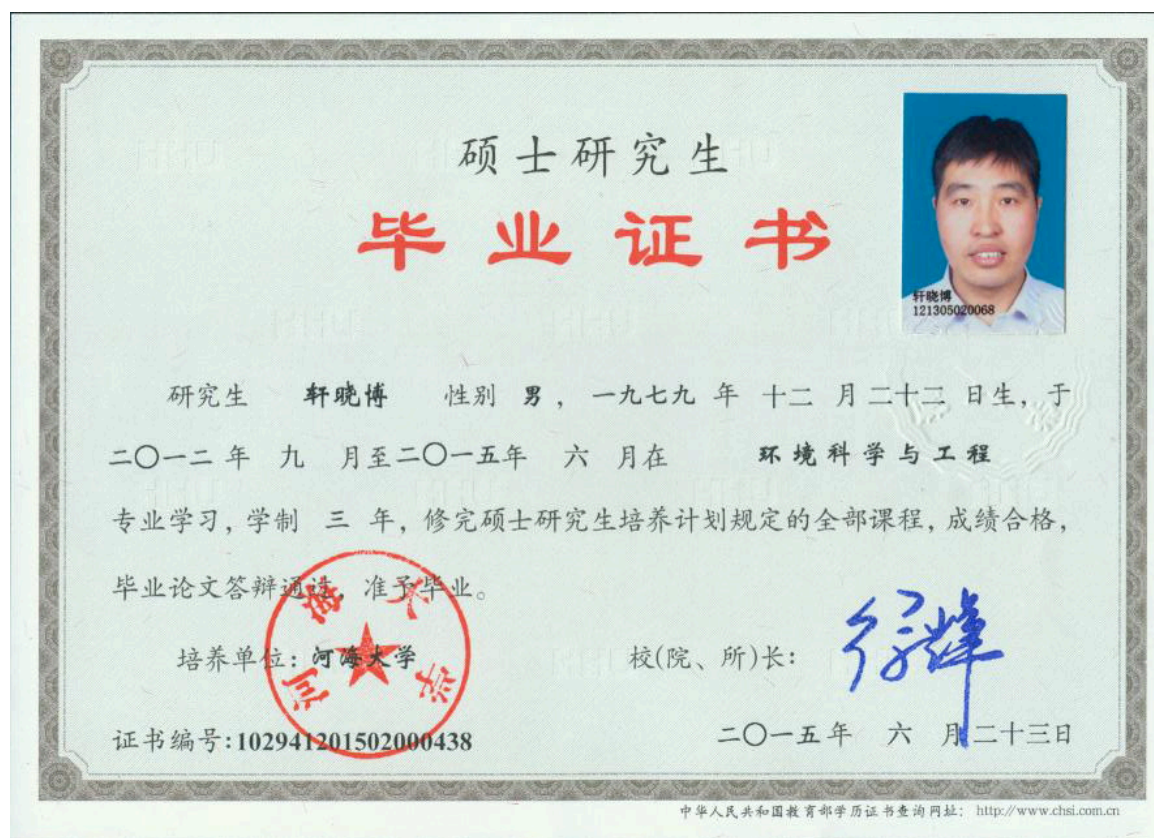 硕士研究生
毕业证书
轩晓博
121305020068
研究生 轩晓博 性别 男，一九七九 年 十二 月二十二 日生，于
二〇一二 年 九 月至二〇一五年 六 月在 环境科学与工程
专业学习，学制 三 年，修完硕士研究生培养计划规定的全部课程，成绩合格，
毕业论文答辩通过，准予毕业。
培养单位：河海大学
校(院、所)长：
河海大学
证书编号:102941201502000438
二〇一五年 六 月二十三日
中华人民共和国教育部学历证书查询网址： http://www.chsi.com.cn